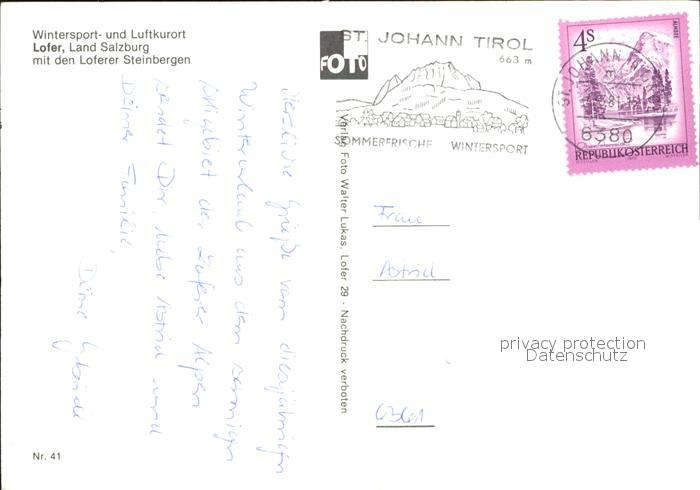 Wintersport- und Luftkurort
Lofer, Land Salzburg
mit den Loferer Steinbergen
ST. JOHANN TIROL
663 m
FOTO
SOMMERFRISCHE WINTERSPORT
4S
ALMSEE
ST. JOHANN
6380
REPUBLIK ÖSTERREICH
Herzliche Grüße vom diesjährigen
Winterurlaub aus dem sonnigen
Skigebiet der Loferer Alpen
sendet Dir, liebe Astrid und
Deiner Familie,
Deine
Verlag Foto Walter Lukas, Lofer 29 - Nachdruck verboten
Frau
Astrid
6361
privacy protection
Datenschutz
Nr. 41